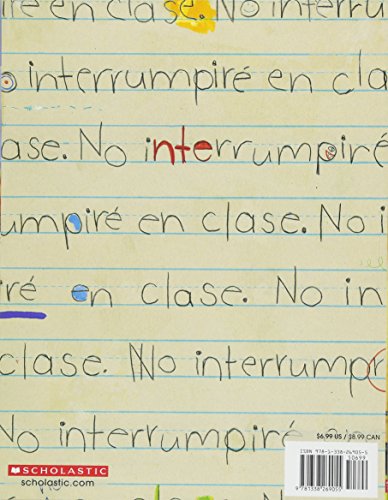 ire en clase. No interru
o interrumpiré en cla
ase. No interrumpiré
umpiré en clase. No i
iré en clase. No in
clase. No interrumpr
No interrumpiré en
$6.99 US / $8.99 CAN
ISBN 978-1-338-26905-5
10699
9 781338 269055
SCHOLASTIC
scholastic.com